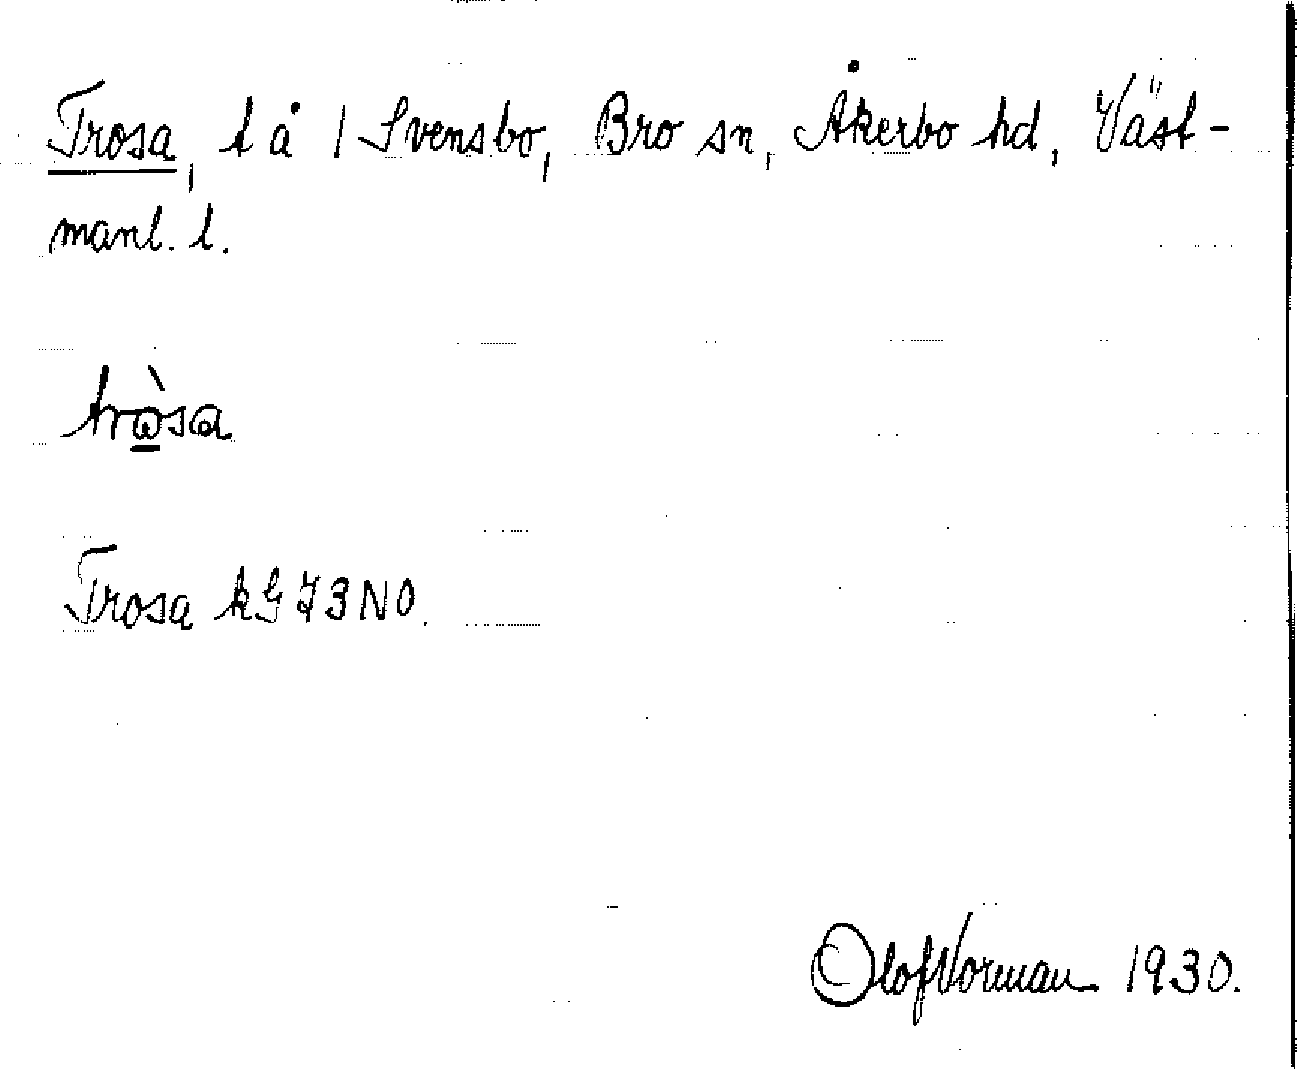 Trosa, t å 1 Svensbo, Bro sn, Åkerbo hd, Väst-
manl. l.
trò̲sa
Trosa kG J3NO.
Olof Norman 1930.